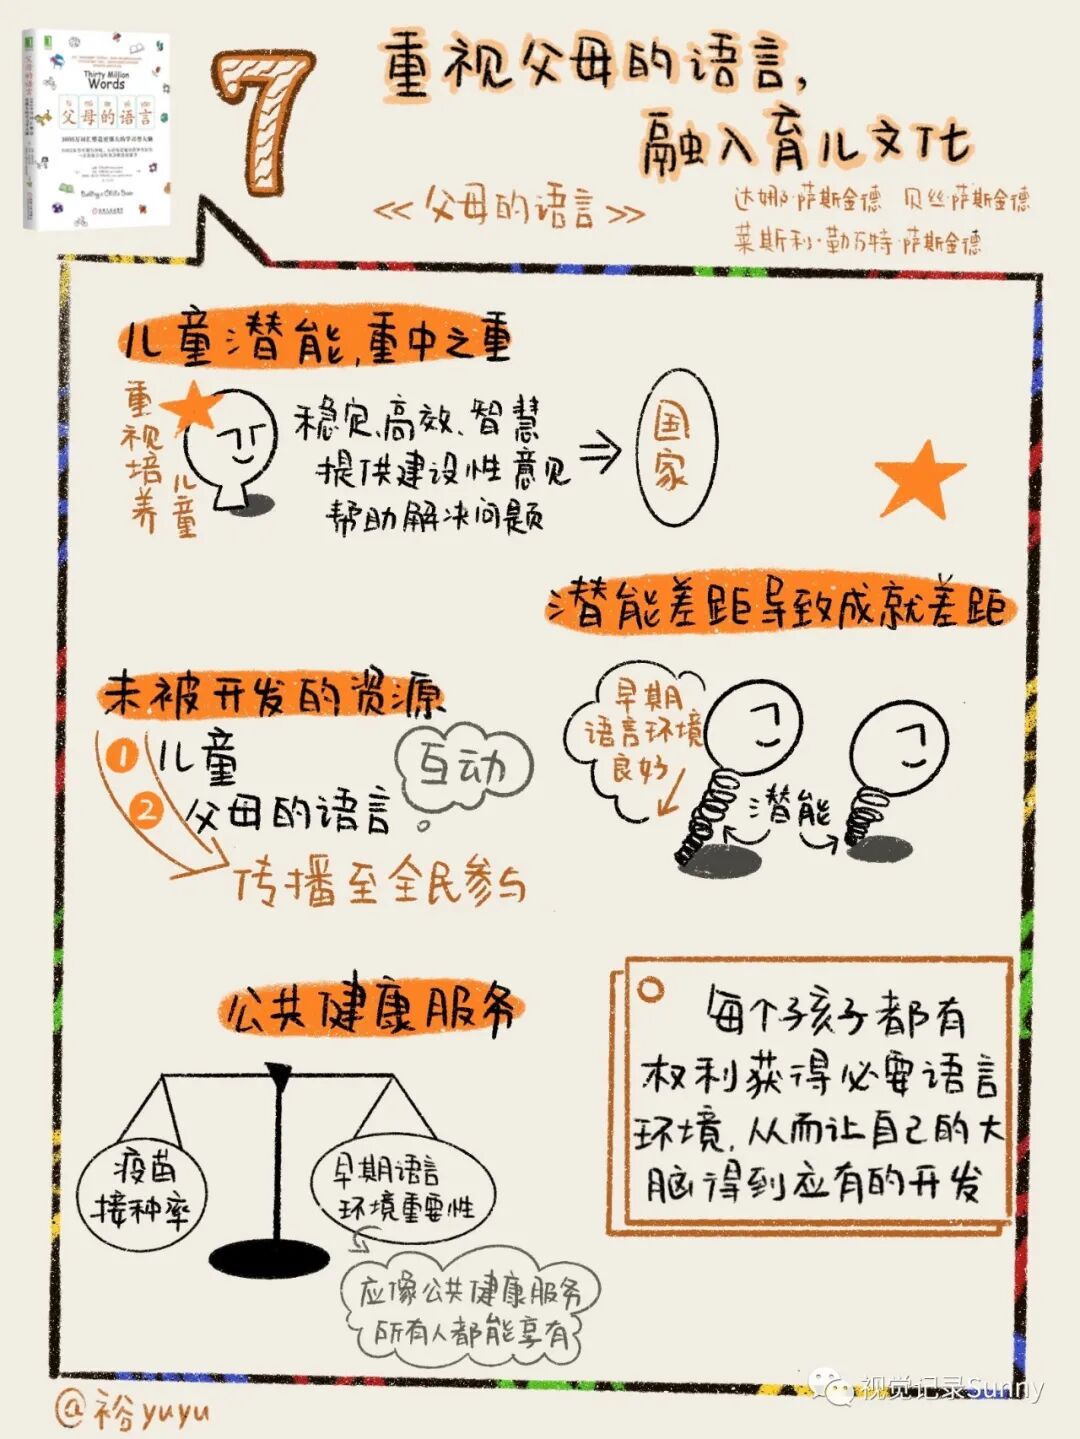 Thirty Million
Words
父母的语言
父母的语言
Building a Child's Brain
7
重视父母的语言,
融入育儿文化
<<父母的语言>>
达娜·萨斯金德 贝丝·萨斯金德
莱斯利·勒万特·萨斯金德
儿童潜能,重中之重
重视培养
儿童
稳定、高效、智慧
提供建设性意见
帮助解决问题
国家
潜能差距导致成就差距
早期
语言环境
良好
潜能
未被开发的资源
1 儿童
2 父母的语言
互动
传播至全民参与
公共健康服务
疫苗
接种率
早期语言
环境重要性
应像公共健康服务
所有人都能享有
每个孩子都有
权利获得必要语言
环境,从而让自己的大
脑得到应有的开发
@裕yuyu
视觉记录Sunny